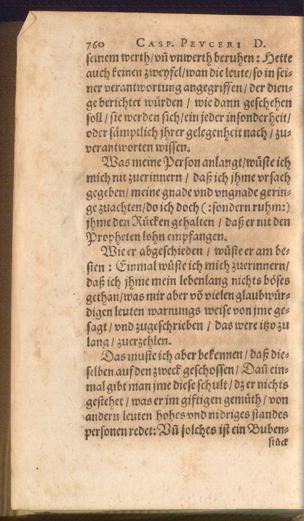 760 CASP. PEVCERI D.
seinem werth/vñ vnwerth beruhen: Hette
auch keinen zweyfel/wan die leute/so in sei-
ner verantwortung angegriffen/der dien-
ge berichtet würden/wie dann geschehen
soll/sie werden sich/ein jeder insonderheit/
oder sämptlich jhrer gelegenheit nach/zu-
verantworten wissen.
Was meine Person anlangt/wüste ich
mich nit zuerinnern/daß ich jhme vrsach
gegeben/meine gnade vnd vngnade gerin-
ge zuachten/do ich doch (:sondern ruhm:)
jhme den Rücken gehalten/daß er nit den
Propheten lohn empfangen.
Wie er abgeschieden/wüste er am be-
sten: Einmal wüste ich mich zuerinnern/
daß ich jhme mein lebenlang nichts böses
gethan/was mir aber võ vielen glaubwür-
digen leuten warnungs weise von jme ge-
sagt/vnd zugeschrieben/das were itzo zu
lang/zuerzehlen.
Das muste ich aber bekennen/daß die-
selben auf den zweck geschossen/Dañ ein-
mal gibt man jme diese schult/dz er nichts
gestehet/was er im giftigen gemüth/von
andern leuten hohes vnd nidriges standes
personen redet: Vñ solches ist ein Buben-
stück